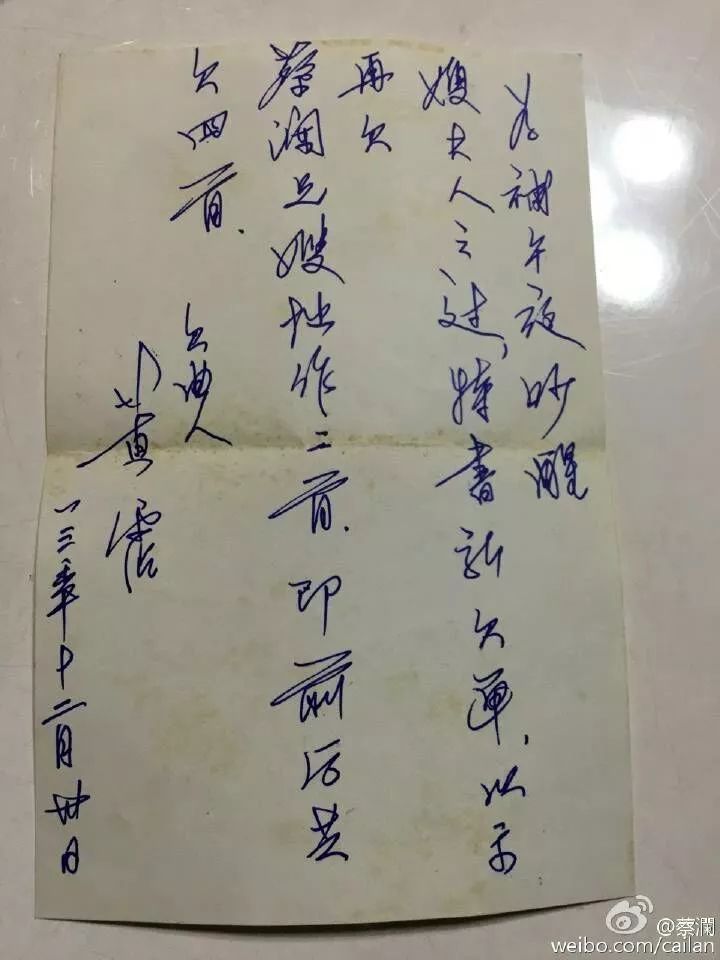 為補午夜吵醒
嫂夫人之过，特書新欠單，以示
再欠
蔡瀾兄嫂拙作二首、即前后共
欠四首、
欠曲人
黄霑
一三年十二月卅日
@蔡瀾
weibo.com/cailan